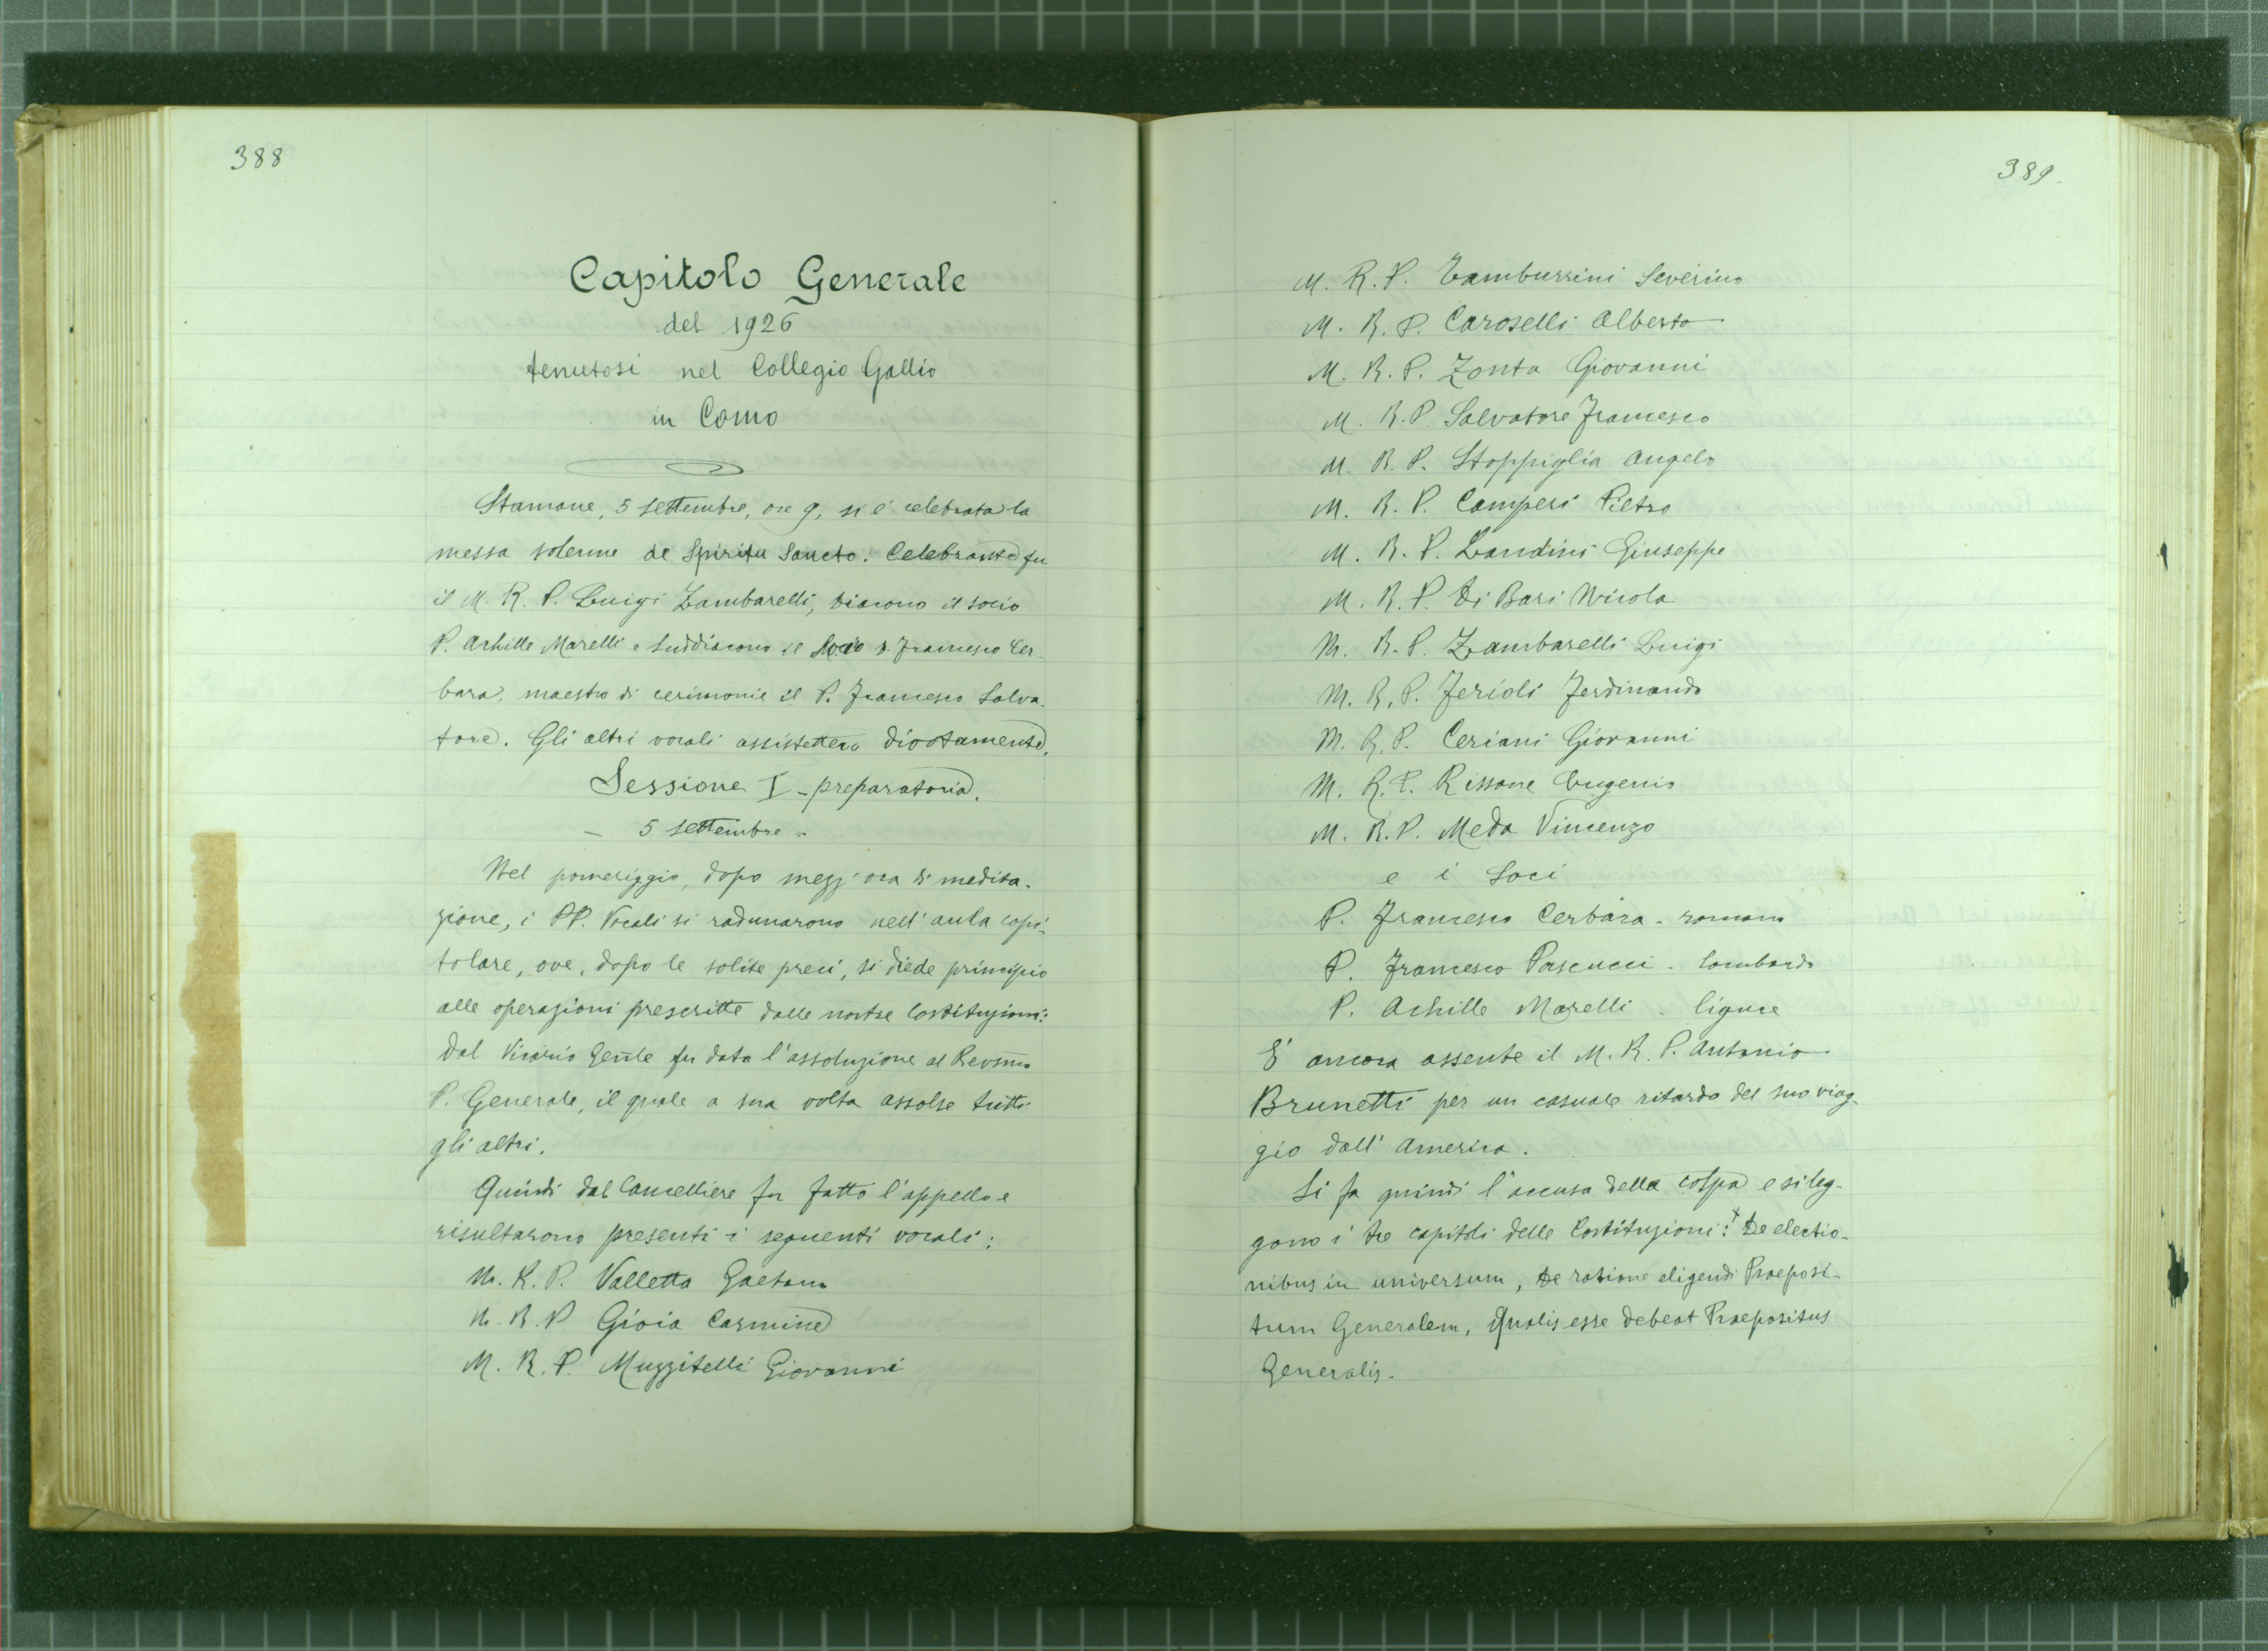 388
Capitolo Generale
del 1926
tenutosi nel Collegio Gallio
in Como
Stamane, 5 settembre, ore 9, si è celebrata la
messa solenne de Spiritu Sancto. Celebrante fu
il M. R. P. Luigi Zambarelli, diacono il socio
P. Achille Marelli e suddiacono il Socio P. Francesco Cer-
bara, maestro di cerimonie il P. Francesco Salva-
tore. Gli altri vocali assistettero divotamente.
Sessione I - preparatoria.
- 5 settembre -
Nel pomeriggio, dopo mezz'ora di medita-
zione, i PP. Vocali si radunarono nell'aula capi-
tolare, ove, dopo le solite preci, si diede principio
alle operazioni prescritte dalle nostre Costituzioni:
dal Vicario Gen̄le fu data l'assoluzione al Revs̄mo
P. Generale, il quale a sua volta assolse tutti
gli altri.
Quindi dal Cancelliere fu fatto l'appello e
risultarono presenti i seguenti vocali:
M. R. P. Valletta Gaetano
M. R. P. Gioia Carmine
M. R. P. Muzzitelli Giovanni
389.
M. R. P. Tamburrini Severino
M. R. P. Caroselli Alberto
M. R. P. Zonta Giovanni
M. R. P. Salvatore Francesco
M. R. P. Stoppiglia Angelo
M. R. P. Camperi Pietro
M. R. P. Landini Giuseppe
M. R. P. Di Bari Nicola
M. R. P. Zambarelli Luigi
M. R. P. Ferioli Ferdinando
M. R. P. Ceriani Giovanni
M. R. P. Rissone Eugenio
M. R. P. Meda Vincenzo
e i Soci
P. Francesco Cerbara - romano
P. Francesco Pascucci - lombardo
P. Achille Marelli - ligure
E' ancora assente il M. R. P. Antonio
Brunetti per un casuale ritardo del suo viag-
gio dall'America.
Si fa quindi l'accusa della colpa e si leg-
gono i tre capitoli delle Costituzioni: De electio-
nibus in universum, De ratione eligendi Praeposi-
tum Generalem, Qualis esse debeat Praepositus
Generalis.